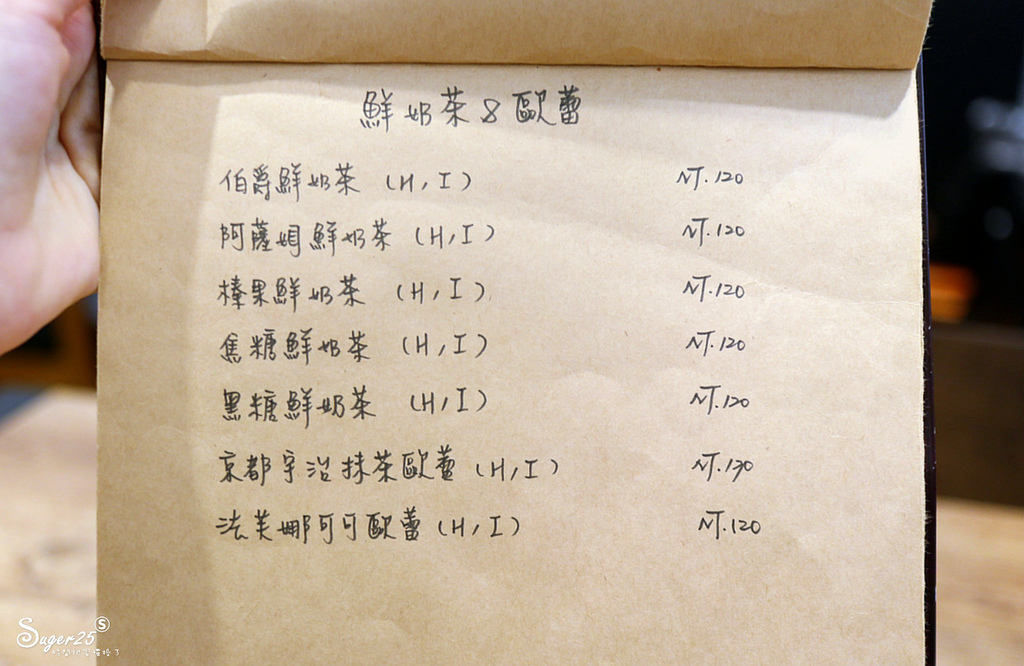 鮮奶茶&歐蕾
伯爵鮮奶茶 (H,I) NT.120
阿薩姆鮮奶茶 (H,I) NT.120
榛果鮮奶茶 (H,I) NT.120
焦糖鮮奶茶 (H,I) NT.120
黑糖鮮奶茶 (H,I) NT.120
京都宇治抹茶歐蕾 (H,I) NT.130
法芙娜可可歐蕾 (H,I) NT.120
Suger25 S